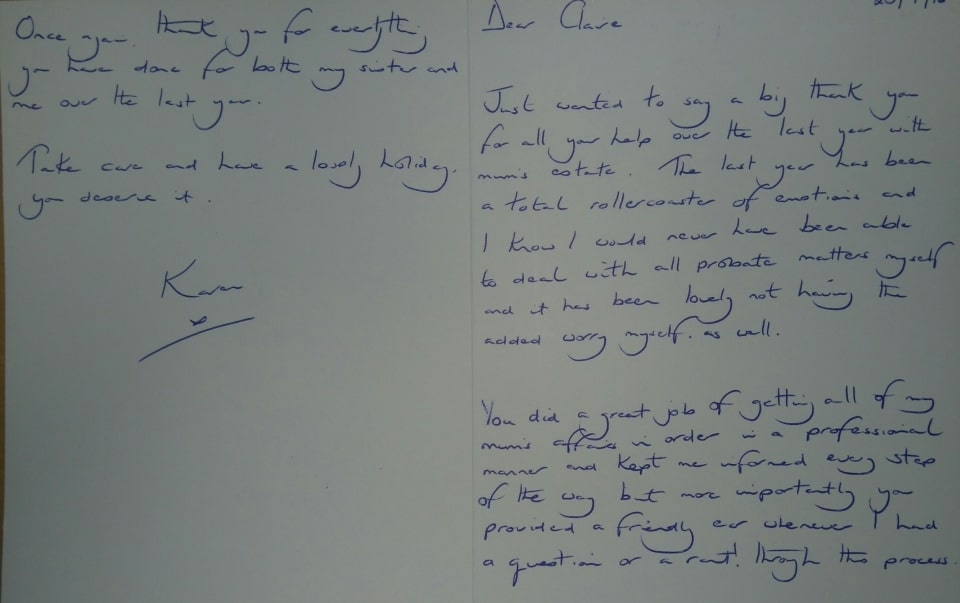 Dear Clare
Just wanted to say a big thank you
for all your help over the last year with
mum's estate. The last year has been
a total rollercoaster of emotions and
I know I would never have been able
to deal with all probate matters myself
and it has been lovely not having the
added worry myself. as well.
You did a great job of getting all of my
mum's affairs in order in a professional
manner and kept me informed every step
of the way but more importantly you
provided a friendly ear whenever I had
a question or a rant! through this process.
Once again, thank you for everything
you have done for both my sister and
me over the last year.
Take care and have a lovely holiday,
you deserve it.
Karen
x